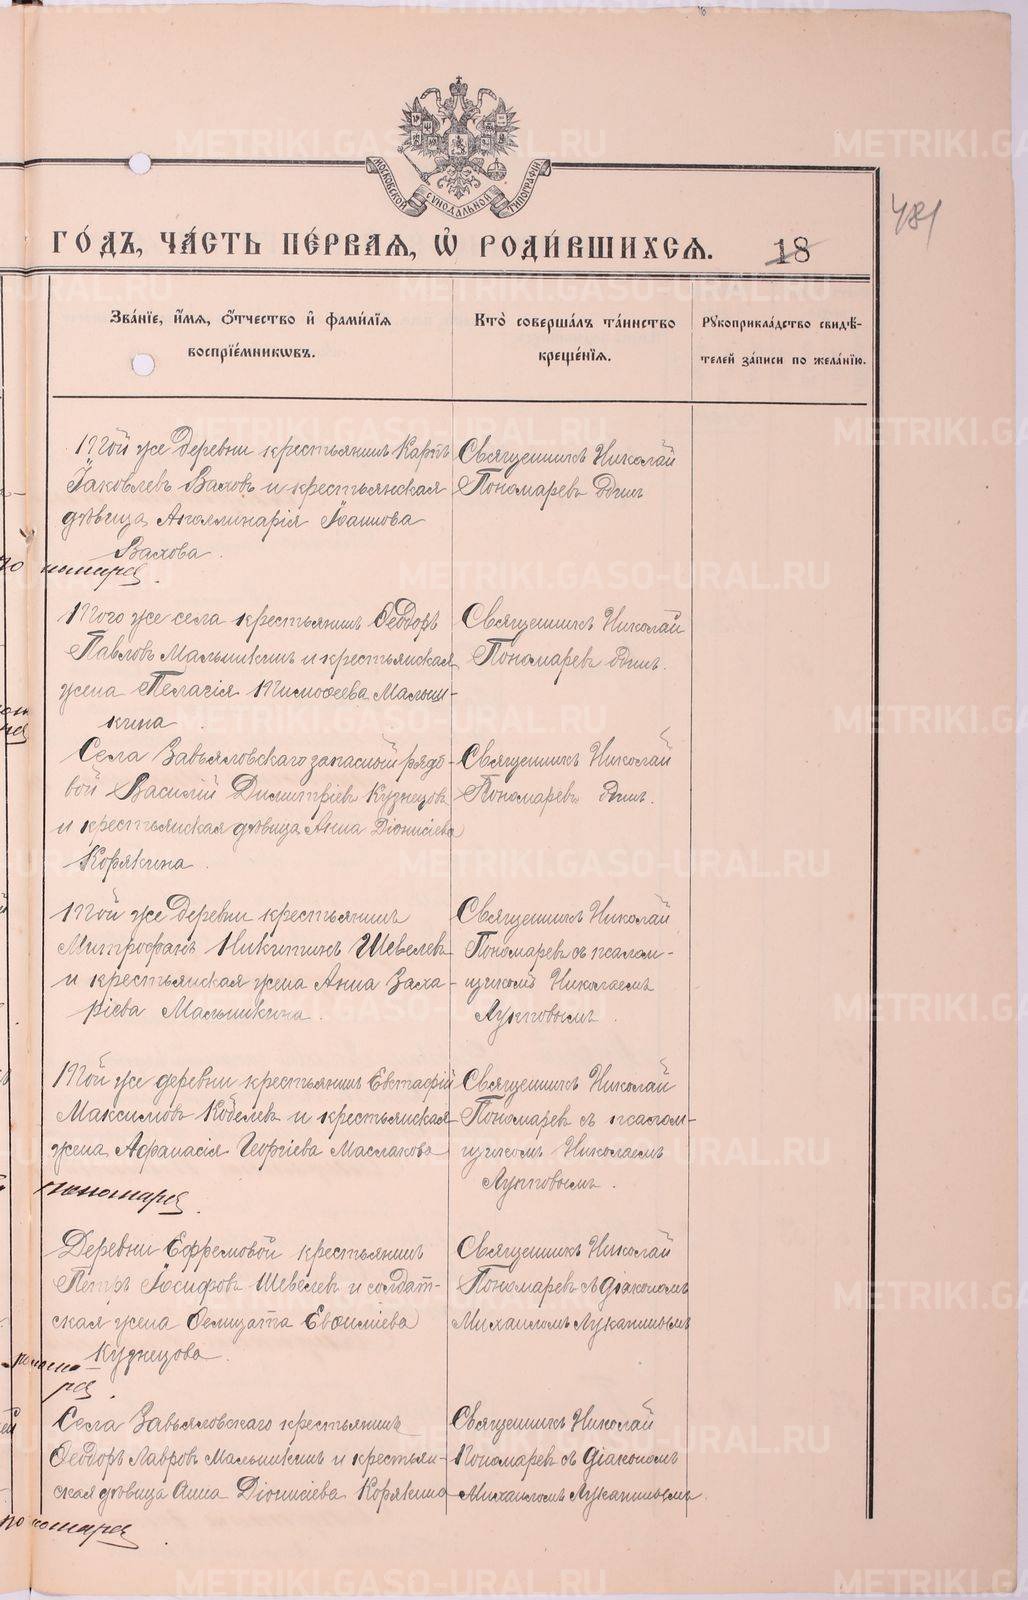 МОСКОВСКОЙ СѴНОДАЛЬНОЙ ТИПОГРАФІИ
481
ГО́ДЪ, ЧА́СТЬ ПЕ́РВАѦ, Ѽ РОДИ́ВШИХСѦ. 18
Зва́нїе, и҆́мѧ, ѻ҆́тчество и҆ фами́лїѧ
воспрїе́мникѡвъ.
Кто̀ соверша́лъ та́инство
креще́нїѧ.
Рꙋкоприкла́дство свидѣ́-
телей за́писи по жела́нїю.
Той же деревни крестьянинъ Карпъ
Іаковлевъ Ваховъ и крестьянская
дѣвица Аполлинарія Іоаннова
Вахова.
Священникъ Николай
Пономаревъ одинъ
номарев.
Того же села крестьянинъ Ѳеодоръ
Павловъ Малышкинъ и крестьянская
жена Пелагія Тимоѳеева Малыш-
кина
Священникъ Николай
Пономаревъ одинъ.
Села Завьяловскаго запасный рядо-
вой Василій Димитріевъ Кузнецовъ
и крестьянская дѣвица Анна Діонисіева
Корякина.
Священникъ Николай
Пономаревъ одинъ.
Той же деревни крестьянинъ
Митрофанъ Никитинъ Шевелевъ
и крестьянская жена Анна Заха-
ріева Малышкина.
Священникъ Николай
Пономаревъ съ псалом-
щикомъ Николаемъ
Луповымъ.
Той же деревни крестьянинъ Евстафій
Максимовъ Кобелевъ и крестьянская
жена Афанасія Георгіева Маслакова
Священникъ Николай
Пономаревъ съ псалом-
щикомъ Николаемъ
Луповымъ.
пономарев.
Деревни Ефремовой крестьянинъ
Петръ Іосифовъ Шевелевъ и солдат-
ская жена Фелицата
Кузнецова.
Священникъ Николай
Пономаревъ съ діакономъ
Михаиломъ Лукашинымъ
Села Завьяловскаго крестьянинъ
Ѳеодоръ Лавровъ Малышкинъ и крестьян-
ская дѣвица Анна Діонисіева Корякина
Священникъ Николай
Пономаревъ съ діакономъ
Михаиломъ Лукашинымъ.
пономарев
METRIKI.GASO-URAL.RU